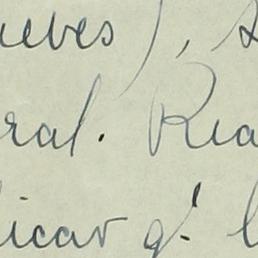 ueves),
ral. Ria
licar q.